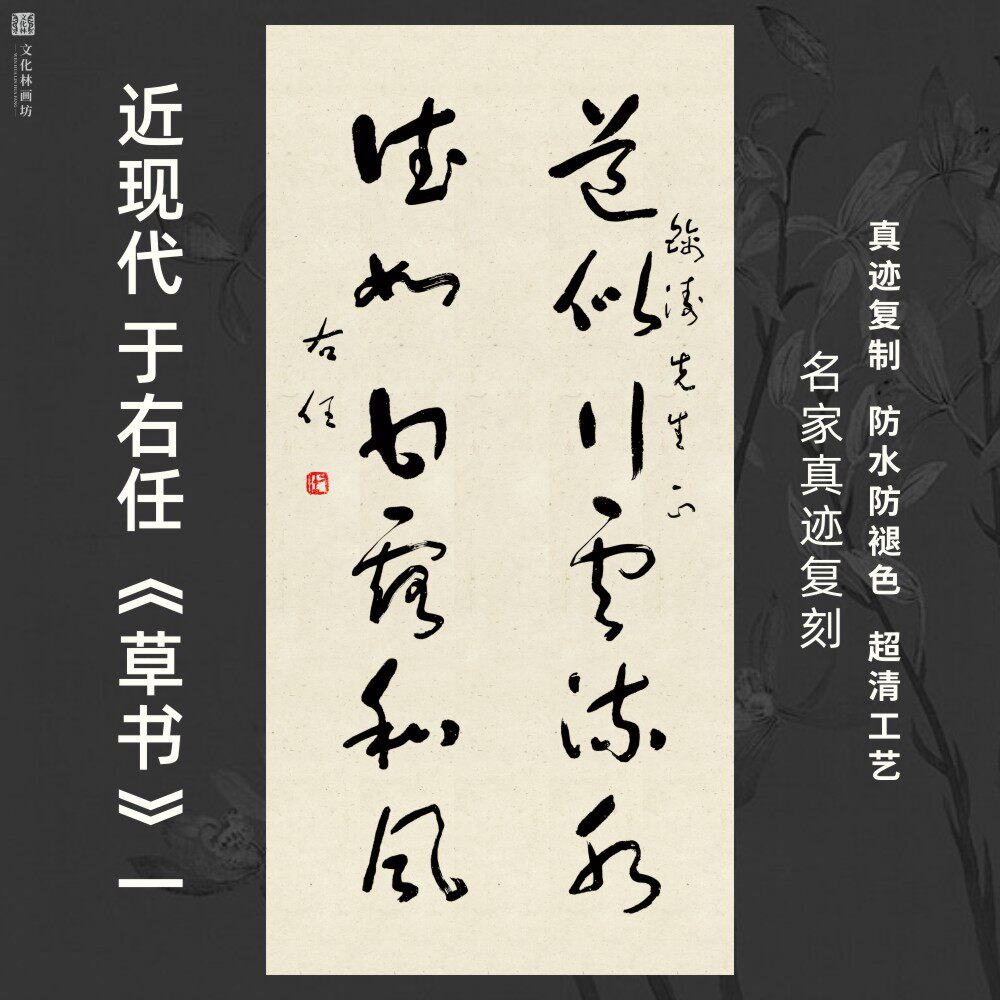 文化林画坊
近现代 于右任 《草书》一
道似行云流水
德如甘露和风
涛先生正
右任
真迹复制 防水防褪色 超清工艺
名家真迹复刻